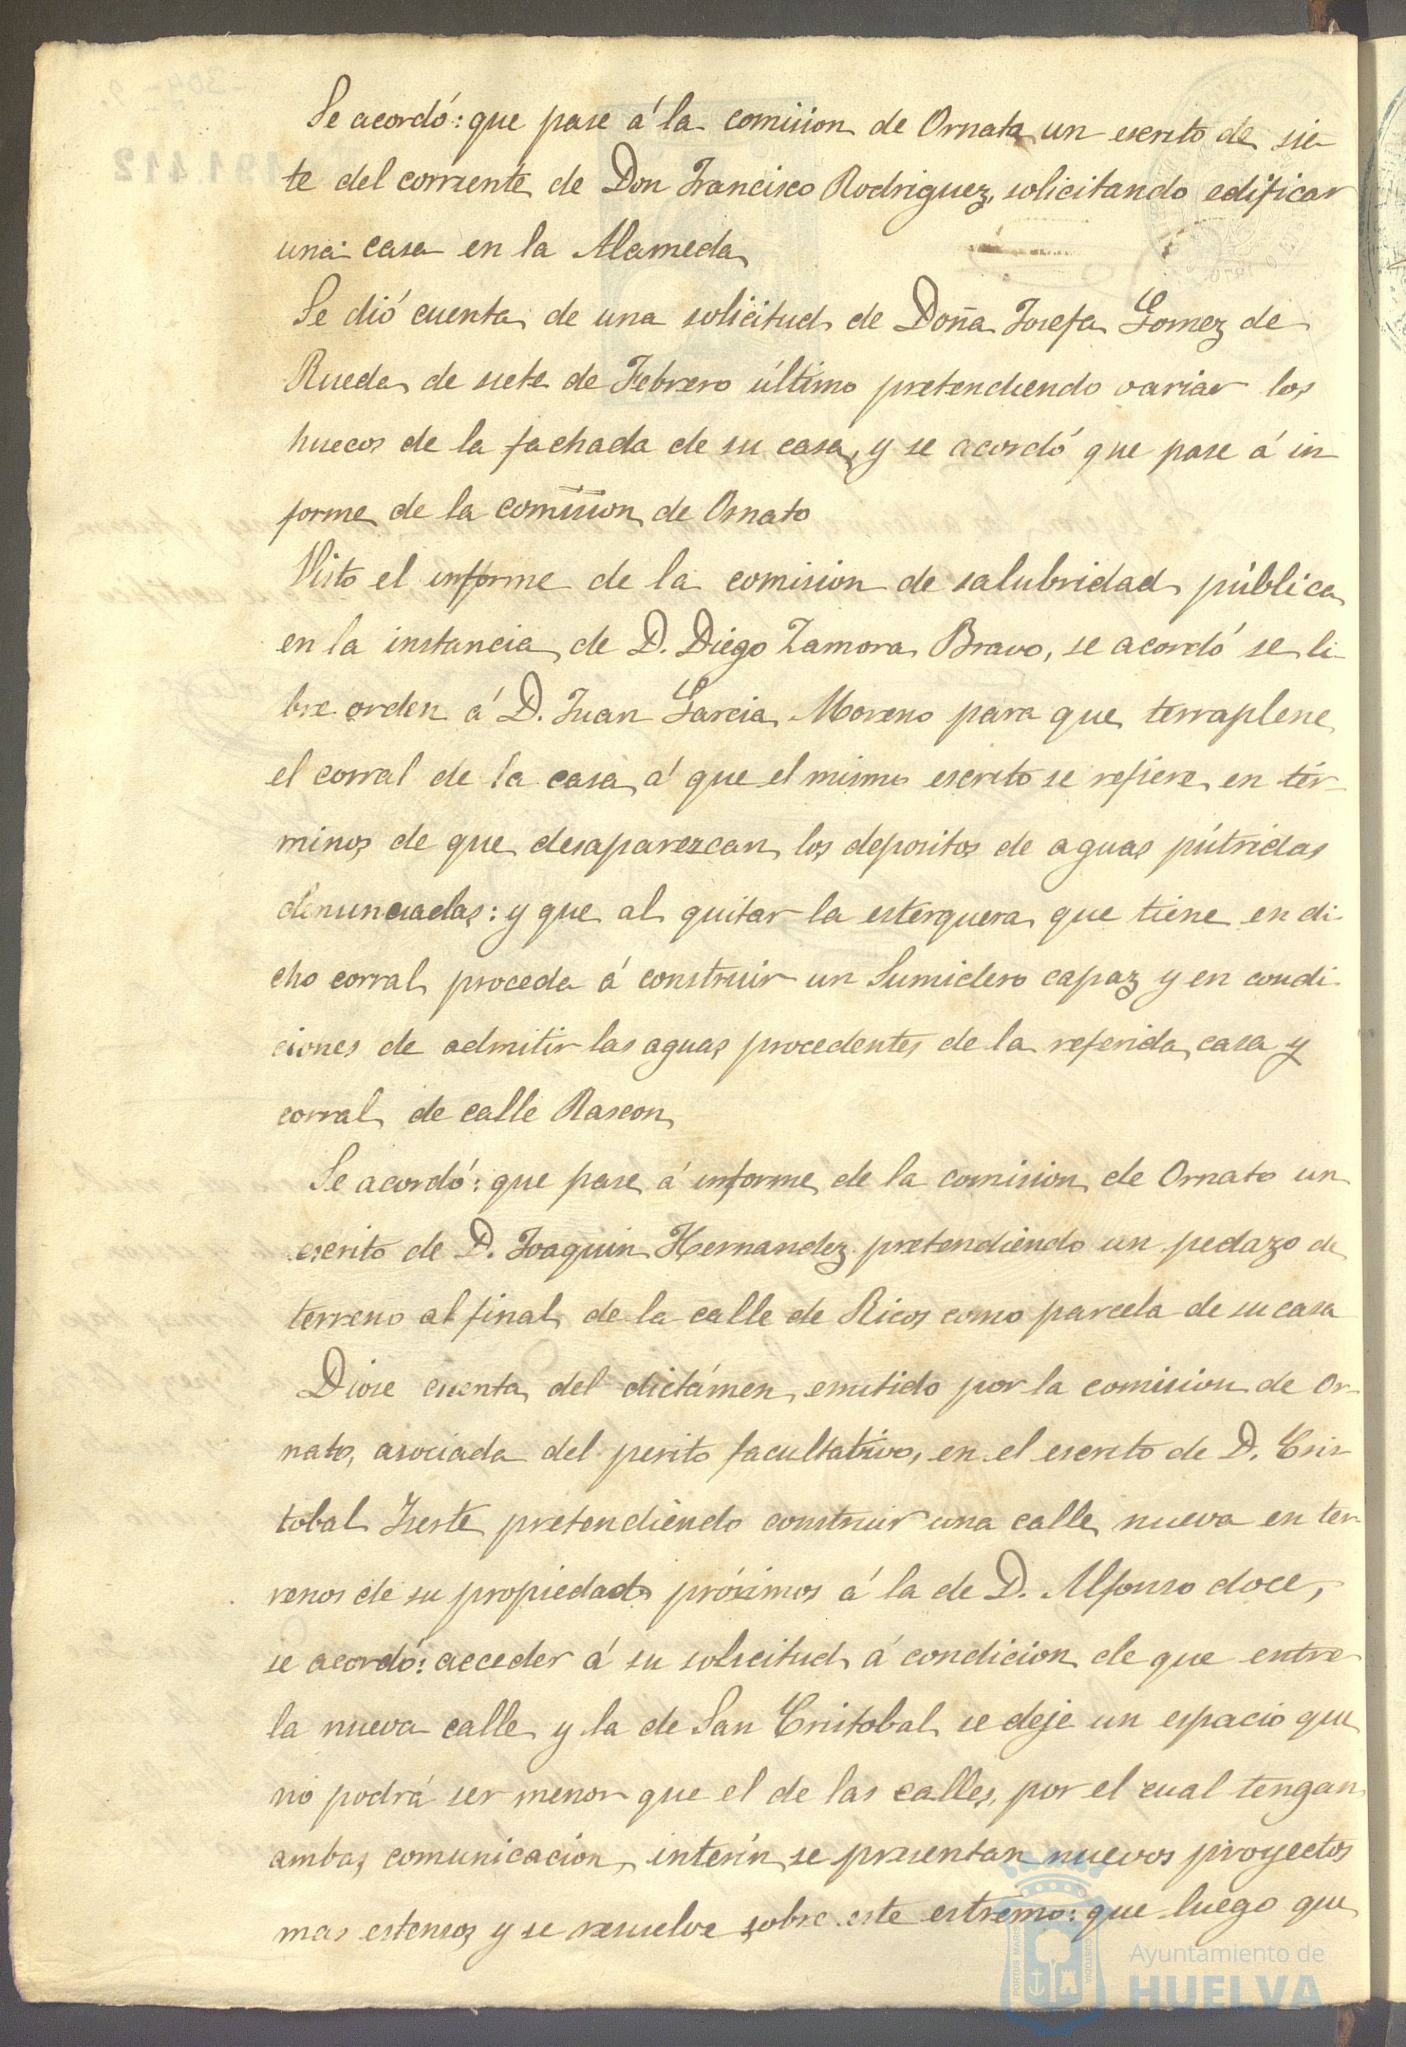 Se acordó: que pase á la comision de Ornato un escrito de sie-
te del corriente de Don Francisco Rodriguez, solicitando edificar
una casa en la Alameda
Se dió cuenta de una solicitud de Doña Josefa Gomez de
Rueda de siete de Febrero último pretendiendo variar los
huecos de la fachada de su casa, y se acordó que pase á in
forme de la comision de Ornato
Visto el informe de la comision de salubridad pública
en la instancia de D. Diego Zamora Bravo, se acordó se li-
bre orden á D. Juan Garcia Moreno para que terraplene
el corral de la casa á que el mismo escrito se refiere en tér-
minos de que desaparezcan los depositos de aguas pútridas
denunciadas: y que al quitar la esterquera que tiene en di-
cho corral proceda á construir un Sumidero capaz y en condi-
ciones de admitir las aguas procedentes de la referida casa y
corral de calle Rascon
Se acordó: que pase á informe de la comision de Ornato un
escrito de D. Joaquin Hernandez pretendiendo un pedazo de
terreno al final de la calle de Ricos como parcela de su casa
Diose cuenta del dictámen emitido por la comision de Or-
nato, asociada del perito facultativo, en el escrito de D. Cris-
tobal pretendiendo construir una calle nueva en ter-
renos de su propiedad próximos á la de D. Alfonso doce,
se acordó: acceder á su solicitud á condicion de que entre
la nueva calle y la de San Cristobal se deje un espacio que
no podrá ser menor que el de las calles, por el cual tengan
ambas comunicacion, interin se presentan nuevos proyectos
mas estensos y se resuelve sobre este estremo: que luego que
Ayuntamiento de
HUELVA